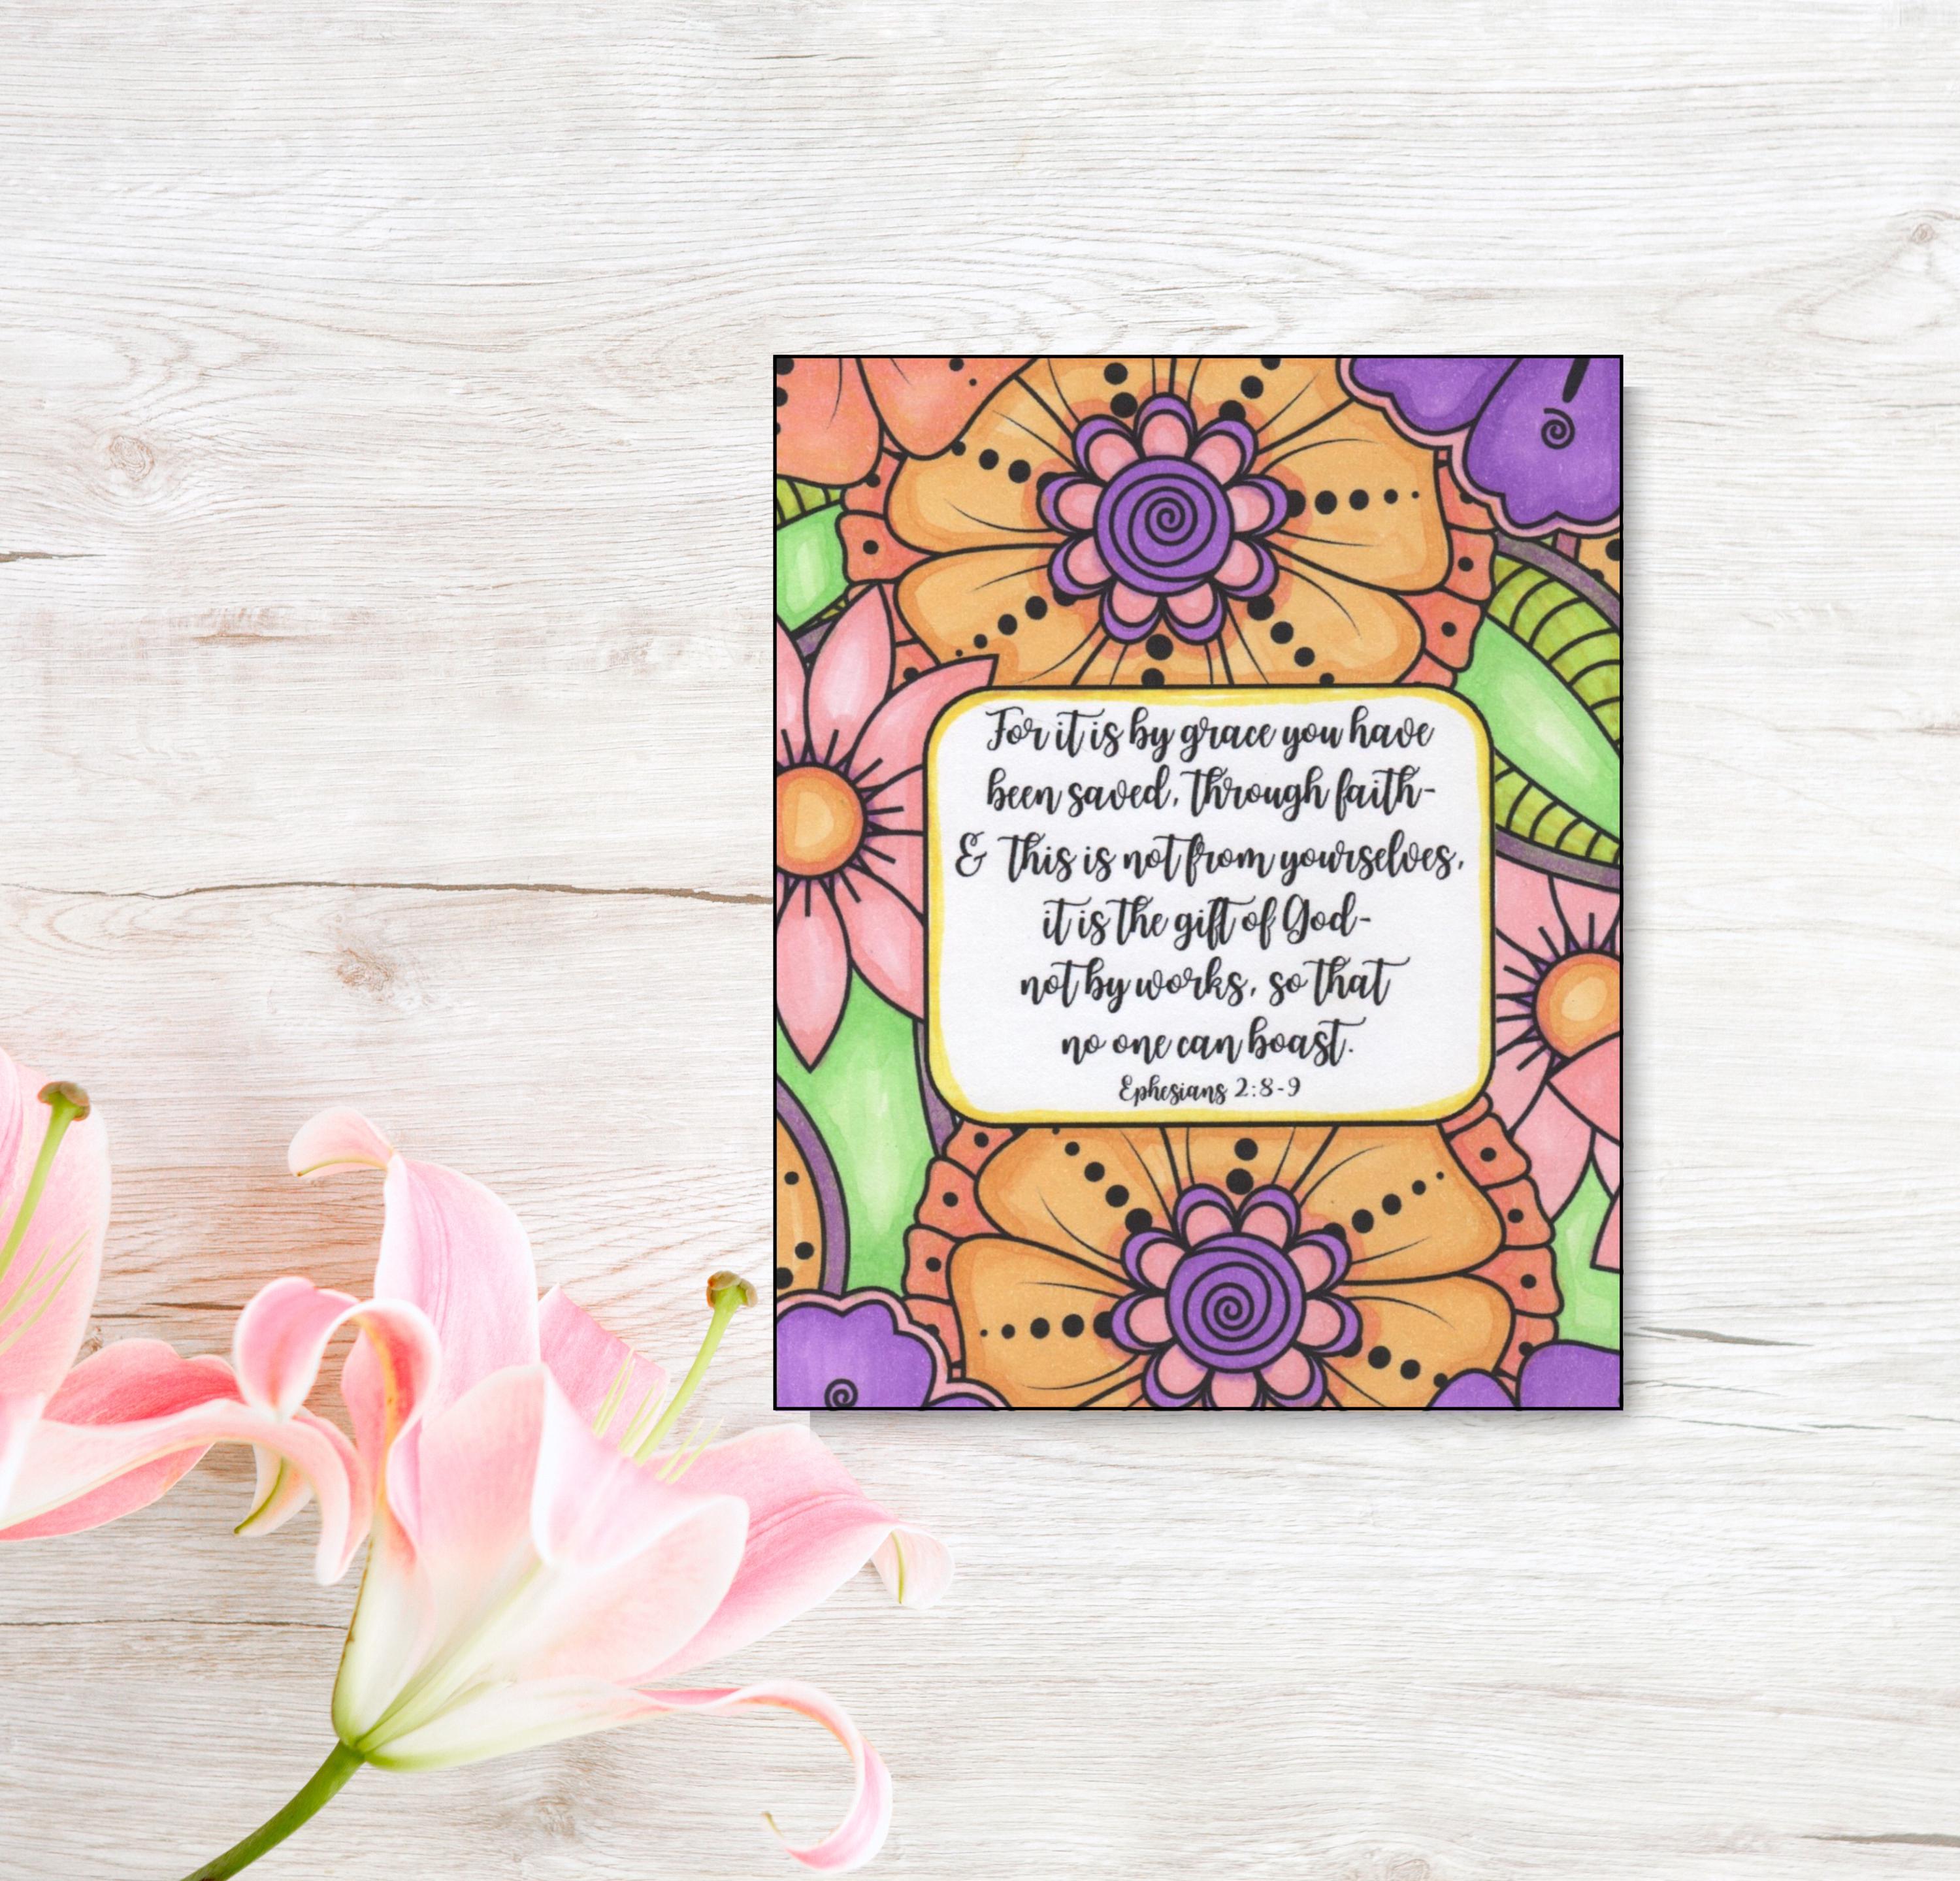 For it is by grace you have
been saved, through faith-
& this is not from yourselves,
it is the gift of God-
not by works, so that
no one can boast.
Ephesians 2:8-9